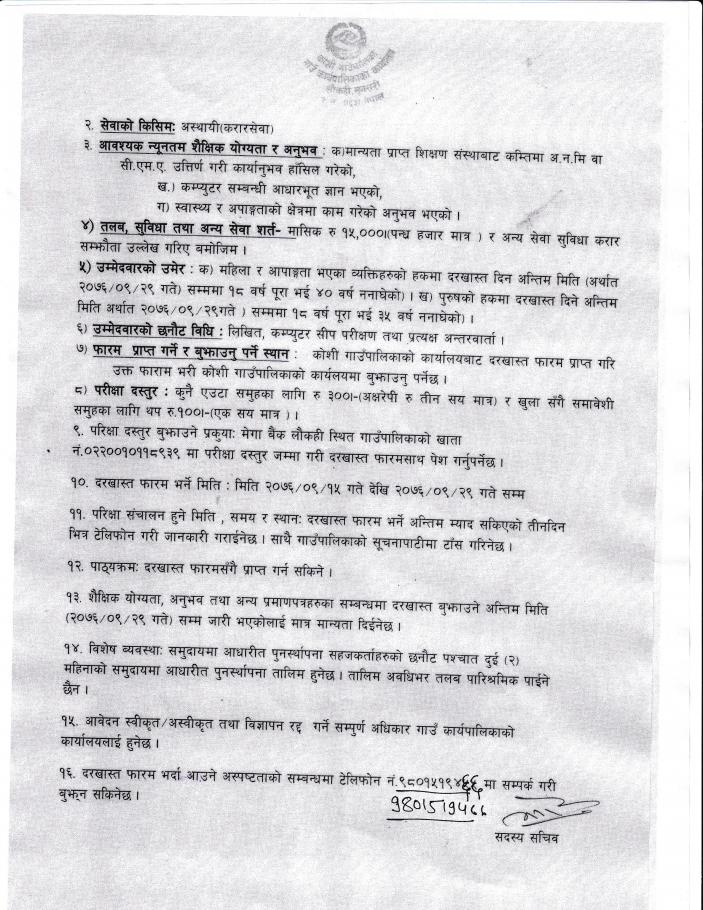 कोशी गाउँपालिका
गाउँ कार्यपालिकाको कार्यालय
लौकही, सुनसरी
१ नं. प्रदेश नेपाल
२. सेवाको किसिमः अस्थायी(करारसेवा)
३. आवश्यक न्यूनतम शैक्षिक योग्यता र अनुभव : क)मान्यता प्राप्त शिक्षण संस्थाबाट कम्तिमा अ.न.मि वा
सी.एम.ए. उत्तिर्ण गरी कार्यानुभव हाँसिल गरेको,
ख.) कम्प्युटर सम्बन्धी आधारभूत ज्ञान भएको,
ग) स्वास्थ्य र अपाङ्गताको क्षेत्रमा काम गरेको अनुभव भएको ।
४) तलब, सुविधा तथा अन्य सेवा शर्त- मासिक रु १५,०००।(पन्ध्र हजार मात्र ) र अन्य सेवा सुविधा करार
सम्झौता उल्लेख गरिए बमोजिम ।
५) उम्मेदवारको उमेर : क) महिला र आपाङ्गता भएका व्यक्तिहरुको हकमा दरखास्त दिन अन्तिम मिति (अर्थात
२०७६/०९/२९ गते) सम्ममा १८ वर्ष पूरा भई ४० वर्ष ननाघेको) । ख) पुरुषको हकमा दरखास्त दिने अन्तिम
मिति अर्थात २०७६/०९/२९गते ) सम्ममा १८ वर्ष पूरा भई ३५ वर्ष ननाघेको) ।
६) उम्मेदवारको छनौट विधि : लिखित, कम्प्युटर सीप परीक्षण तथा प्रत्यक्ष अन्तरवार्ता ।
७) फारम प्राप्त गर्ने र बुझाउनु पर्ने स्थान : कोशी गाउँपालिकाको कार्यालयबाट दरखास्त फारम प्राप्त गरि
उक्त फाराम भरी कोशी गाउँपालिकाको कार्यलयमा बुझाउनु पर्नेछ ।
८) परीक्षा दस्तुर : कुनै एउटा समुहका लागि रु ३००।-(अक्षरेपी रु तीन सय मात्र) र खुला सँगै समावेशी
समुहका लागि थप रु.१००।-(एक सय मात्र ) ।
९. परिक्षा दस्तुर बुझाउने प्रकृयाः मेगा बैंक लौकही स्थित गाउँपालिकाको खाता
नं.०२२००१०११८९३९ मा परीक्षा दस्तुर जम्मा गरी दरखास्त फारमसाथ पेश गर्नुपर्नेछ ।
१०. दरखास्त फारम भर्ने मिति : मिति २०७६/०९/१५ गते देखि २०७६/०९/२९ गते सम्म
११. परिक्षा संचालन हुने मिति , समय र स्थानः दरखास्त फारम भर्ने अन्तिम म्याद सकिएको तीनदिन
भित्र टेलिफोन गरी जानकारी गराईनेछ । साथै गाउँपालिकाको सूचनापाटीमा टाँस गरिनेछ ।
१२. पाठ्यक्रमः दरखास्त फारमसँगै प्राप्त गर्न सकिने ।
१३. शैक्षिक योग्यता, अनुभव तथा अन्य प्रमाणपत्रहरुका सम्बन्धमा दरखास्त बुझाउने अन्तिम मिति
(२०७६/०९/२९ गते) सम्म जारी भएकोलाई मात्र मान्यता दिईनेछ ।
१४. विशेष व्यवस्थाः समुदायमा आधारीत पुनर्स्थापना सहजकर्ताहरुको छनौट पश्चात दुई (२)
महिनाको समुदायमा आधारीत पुनर्स्थापना तालिम हुनेछ । तालिम अवधिभर तलब पारिश्रमिक पाईने
छैन ।
१५. आवेदन स्वीकृत/अस्वीकृत तथा विज्ञापन रद्द गर्ने सम्पुर्ण अधिकार गाउँ कार्यपालिकाको
कार्यालयलाई हुनेछ ।
१६. दरखास्त फारम भर्दा आउने अस्पष्टताको सम्बन्धमा टेलिफोन नं.९८०१५१९४६६ मा सम्पर्क गरी
बुझ्न सकिनेछ ।
सदस्य सचिव